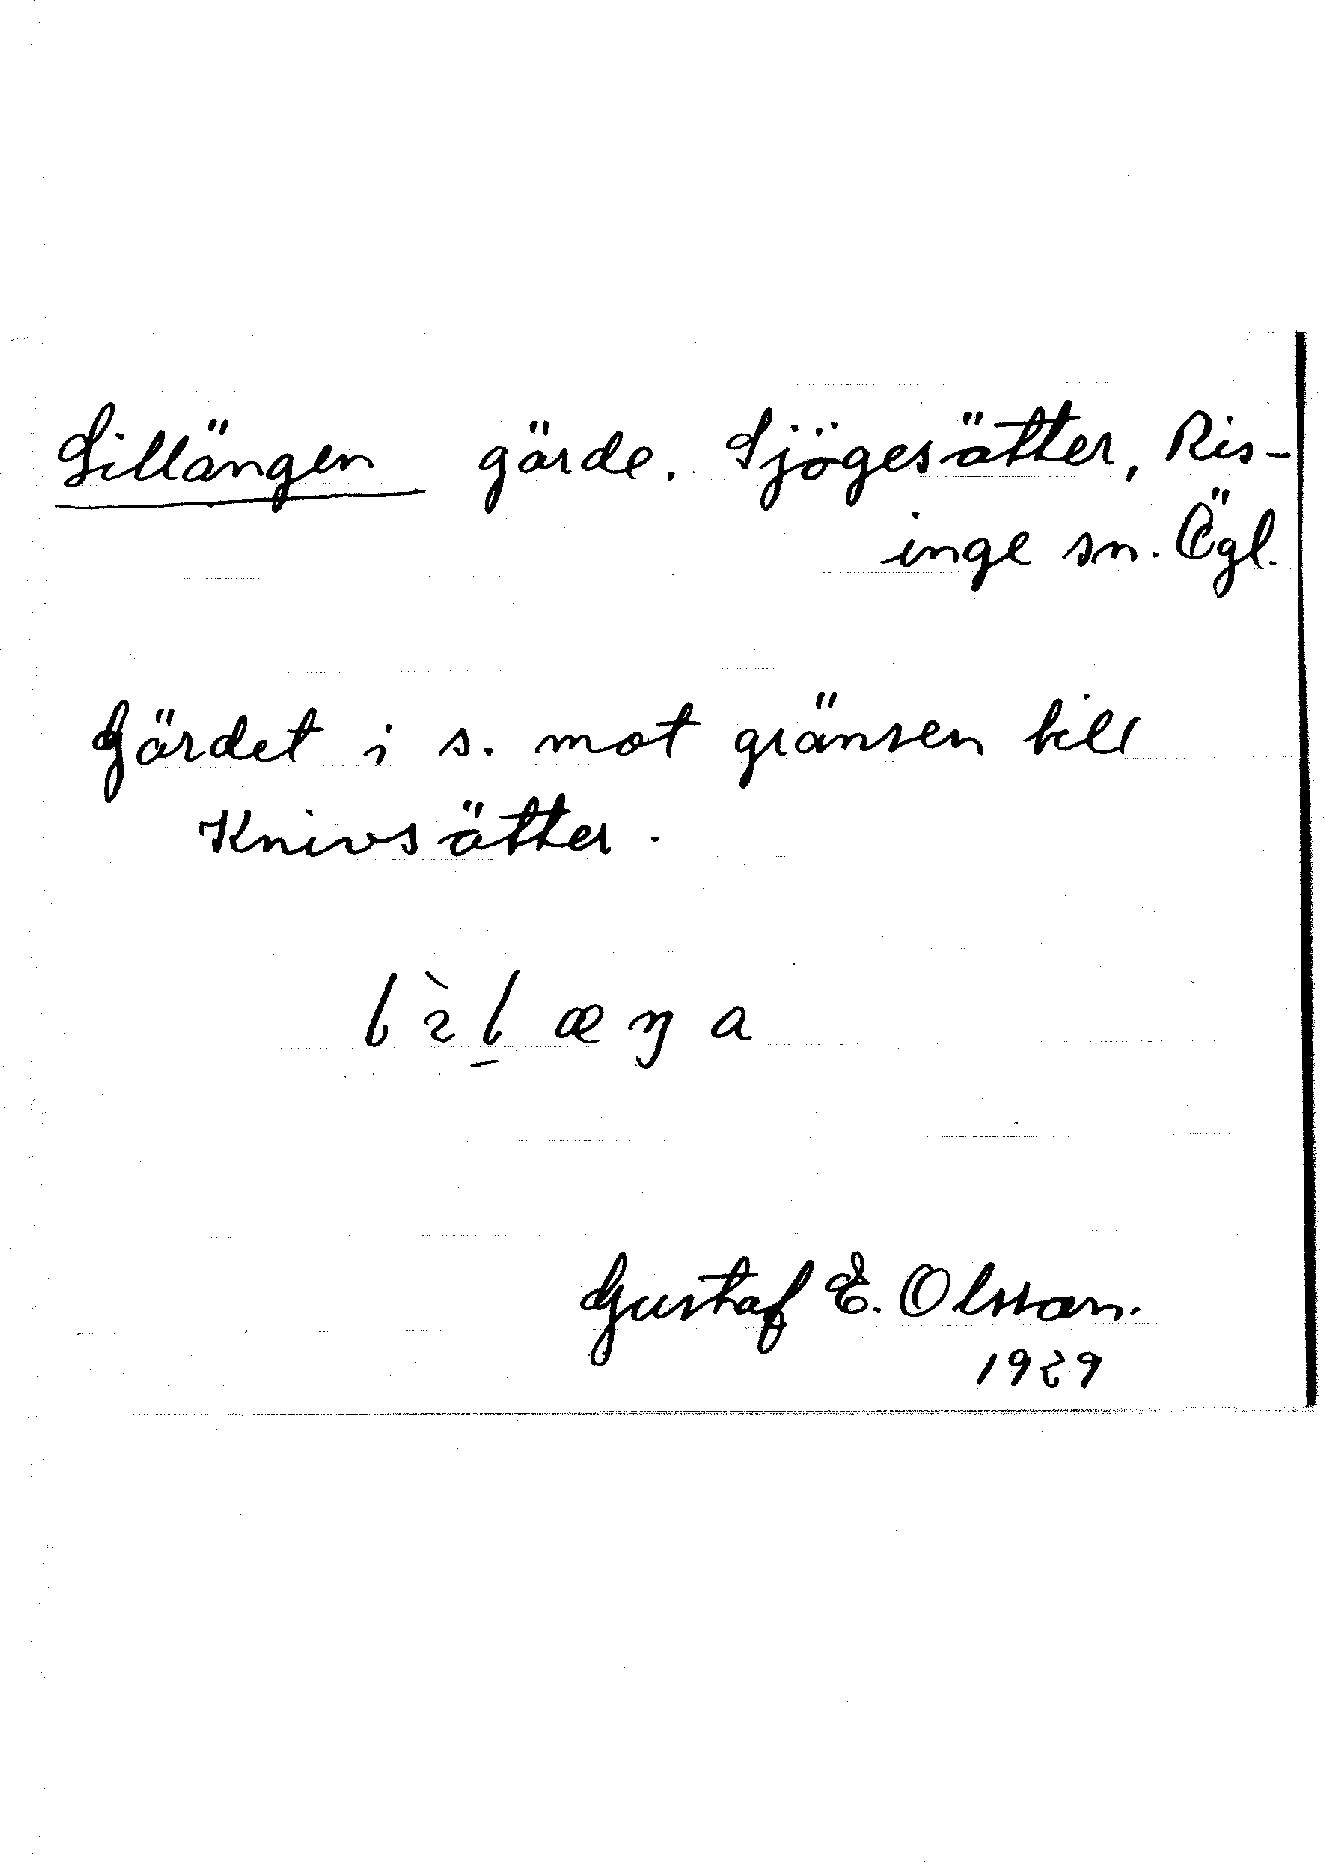 Lillängen gärde. Sjögesätter, Ris-
inge sn. Ögl.
Gärdet i s. mot gränsen till
Knivsätter.
Gustaf E. Olsson.
1929